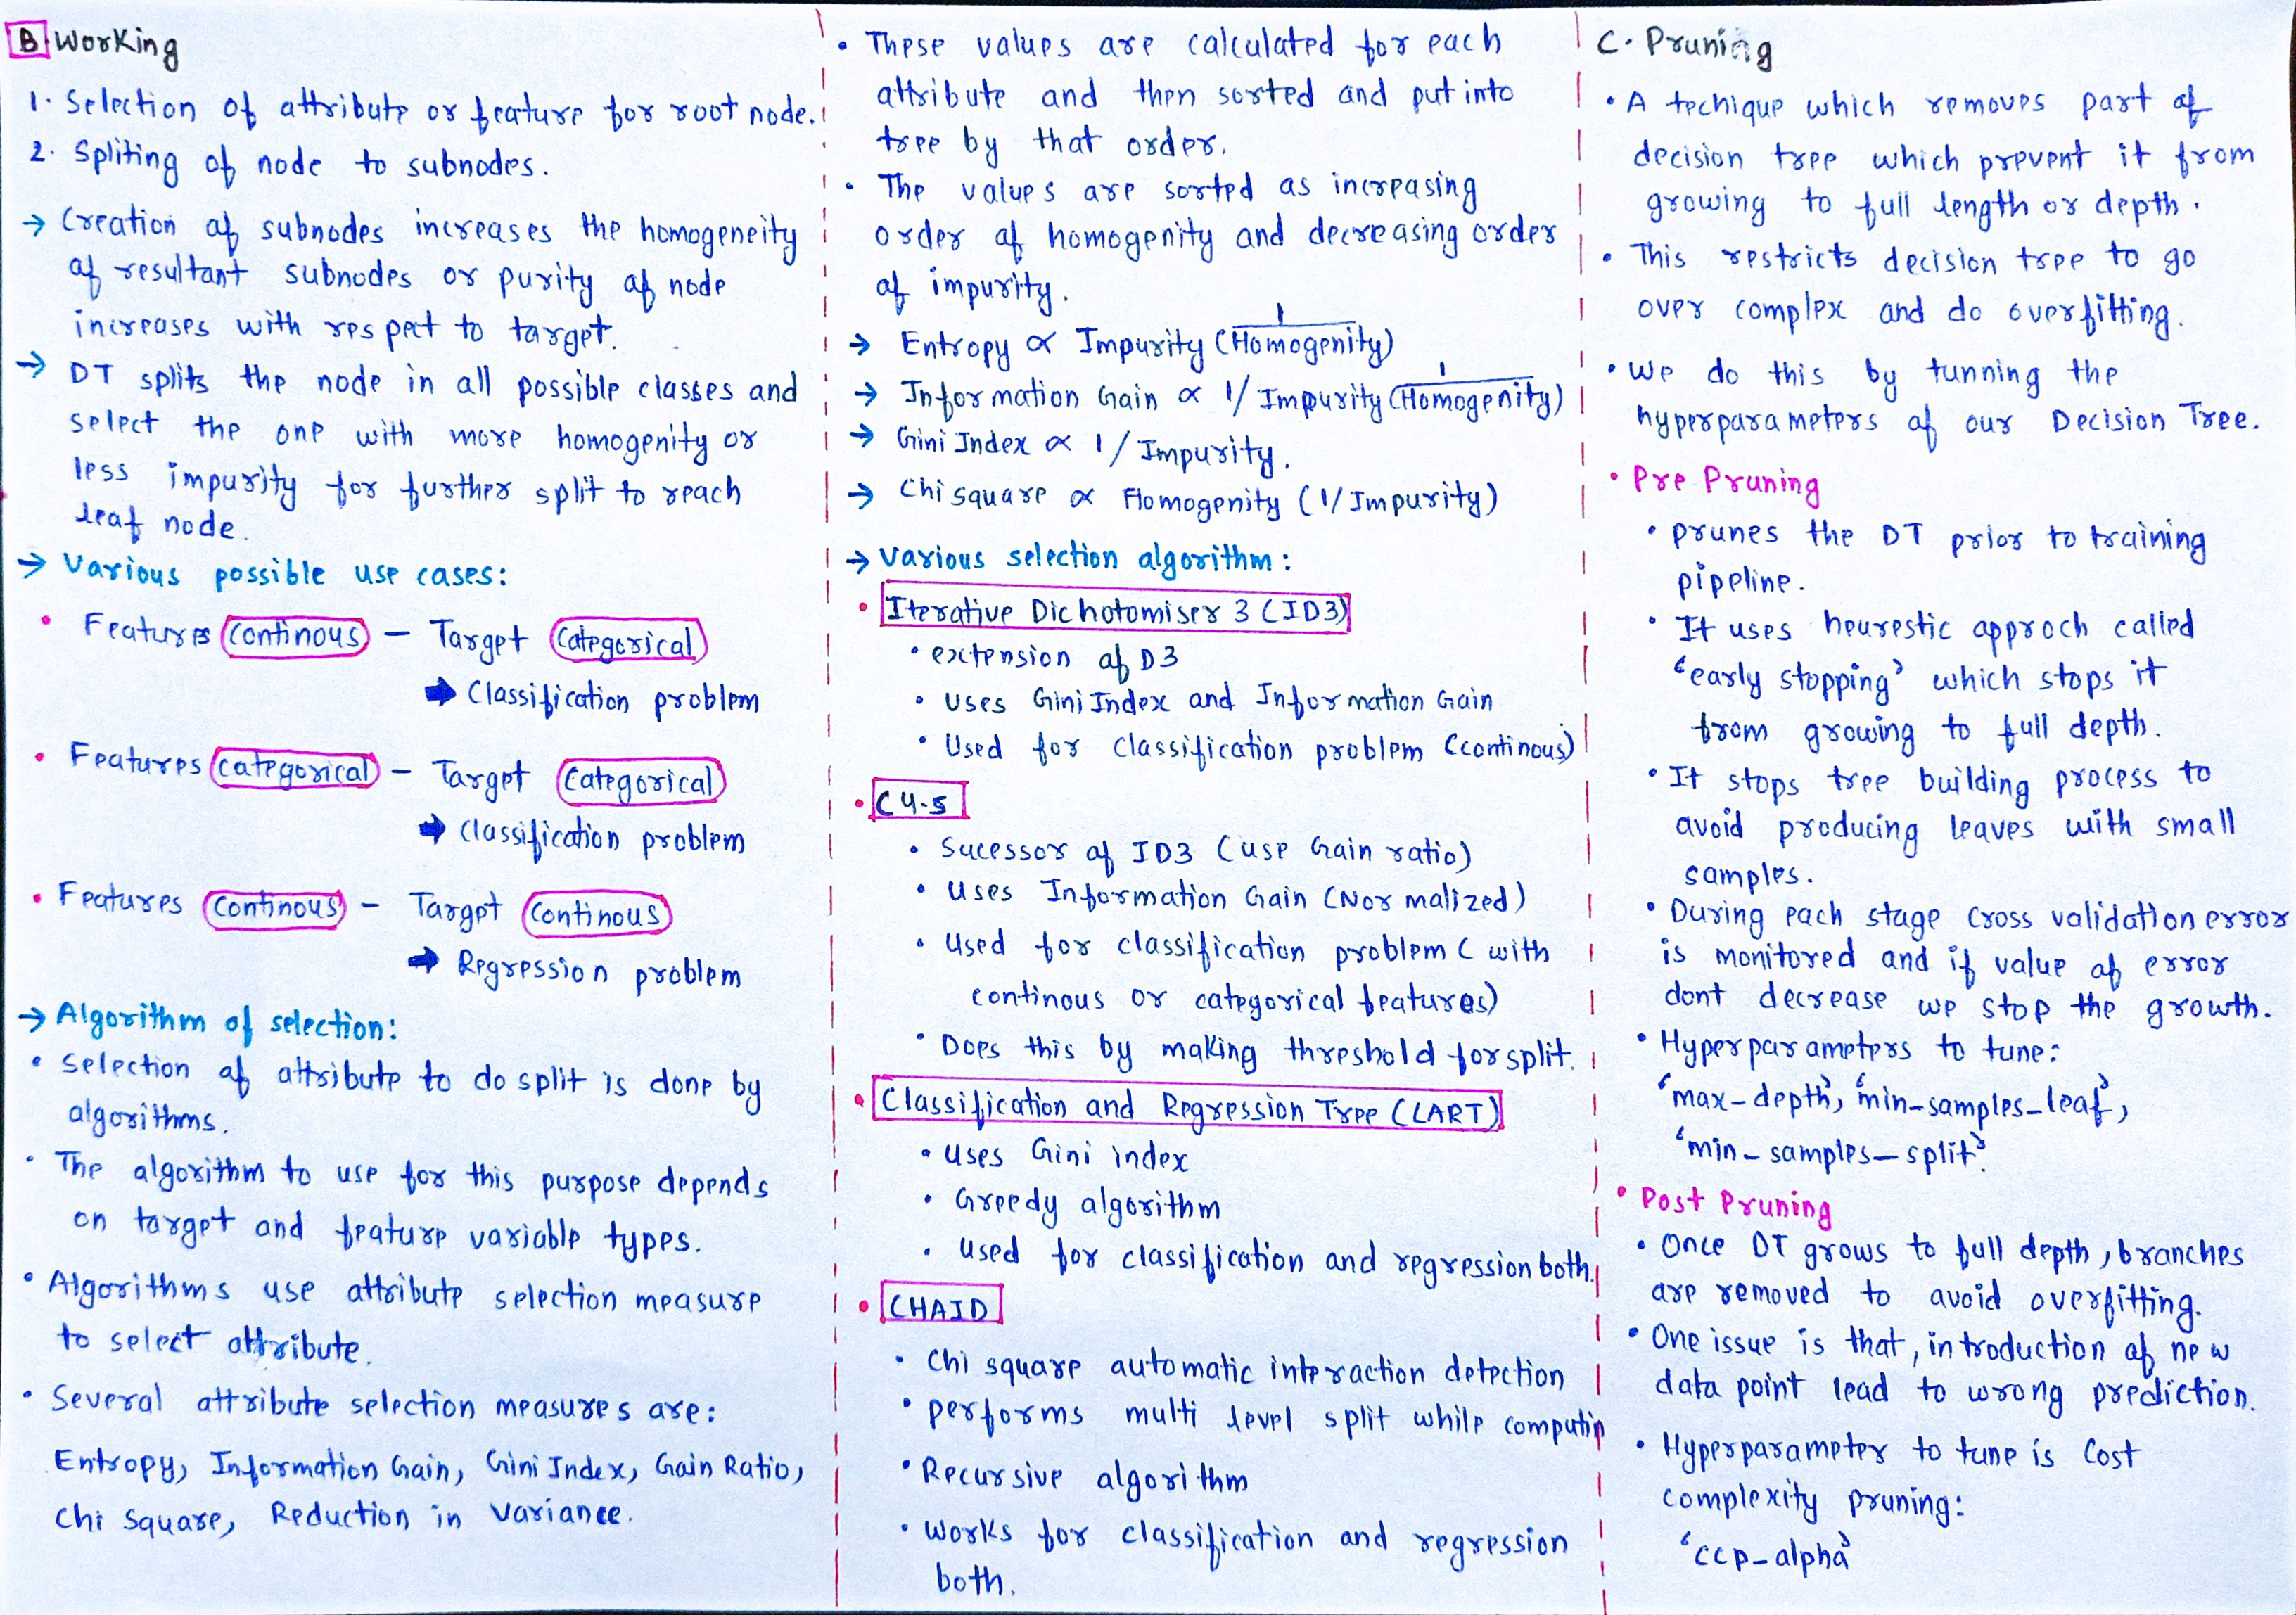 B Working
1. Selection of attribute or feature for root node.
2. Spliting of node to subnodes.
→ Creation of subnodes increases the homogeneity
of resultant subnodes or purity of node
increases with respect to target.
→ DT splits the node in all possible classes and
select the one with more homogenity or
less impurity for further split to reach
leaf node.
→ Various possible use cases:
• Features continous - Target categorical
➡ Classification problem
• Features categorical - Target categorical
➡ Classification problem
• Features continous - Target continous
➡ Regression problem
→ Algorithm of selection:
• Selection of attribute to do split is done by
algorithms.
• The algorithm to use for this purpose depends
on target and feature variable types.
• Algorithms use attribute selection measure
to select attribute.
• Several attribute selection measures are:
Entropy, Information Gain, Gini Index, Gain Ratio,
Chi Square, Reduction in Variance.
• These values are calculated for each
attribute and then sorted and put into
tree by that order.
• The values are sorted as increasing
order of homogenity and decreasing order
of impurity.
→ Entropy ∝ Impurity (1/Homogenity)
→ Information Gain ∝ 1/Impurity (1/Homogenity)
→ Gini Index ∝ 1/Impurity.
→ Chi square ∝ Homogenity (1/Impurity)
→ Various selection algorithm:
• Iterative Dichotomiser 3 (ID3)
• extension of D3
• uses Gini Index and Information Gain
• Used for classification problem (continous)
• C4.5
• Sucessor of ID3 (use Gain ratio)
• Uses Information Gain (Normalized)
• Used for classification problem (with
continous or categorical features)
• Does this by making threshold for split.
• Classification and Regression Tree (CART)
• Uses Gini index
• Greedy algorithm
• used for classification and regression both.
• CHAID
• Chi square automatic interaction detection
• performs multi level split while computin
• Recursive algorithm
• Works for classification and regression
both.
C. Pruning
• A techique which removes part of
decision tree which prevent it from
growing to full length or depth.
• This restricts decision tree to go
over complex and do overfitting.
• We do this by tunning the
hyperparameters of our Decision Tree.
• Pre Pruning
• prunes the DT prior to training
pipeline.
• It uses heurestic approch called
'early stopping' which stops it
from growing to full depth.
• It stops tree building process to
avoid producing leaves with small
samples.
• During each stage cross validation error
is monitored and if value of error
dont decrease we stop the growth.
• Hyperparameters to tune:
'max_depth', 'min_samples_leaf',
'min_samples_split'.
• Post Pruning
• Once DT grows to full depth, branches
are removed to avoid overfitting.
• One issue is that, introduction of new
data point lead to wrong prediction.
• Hyperparameter to tune is Cost
complexity pruning:
'ccp_alpha'